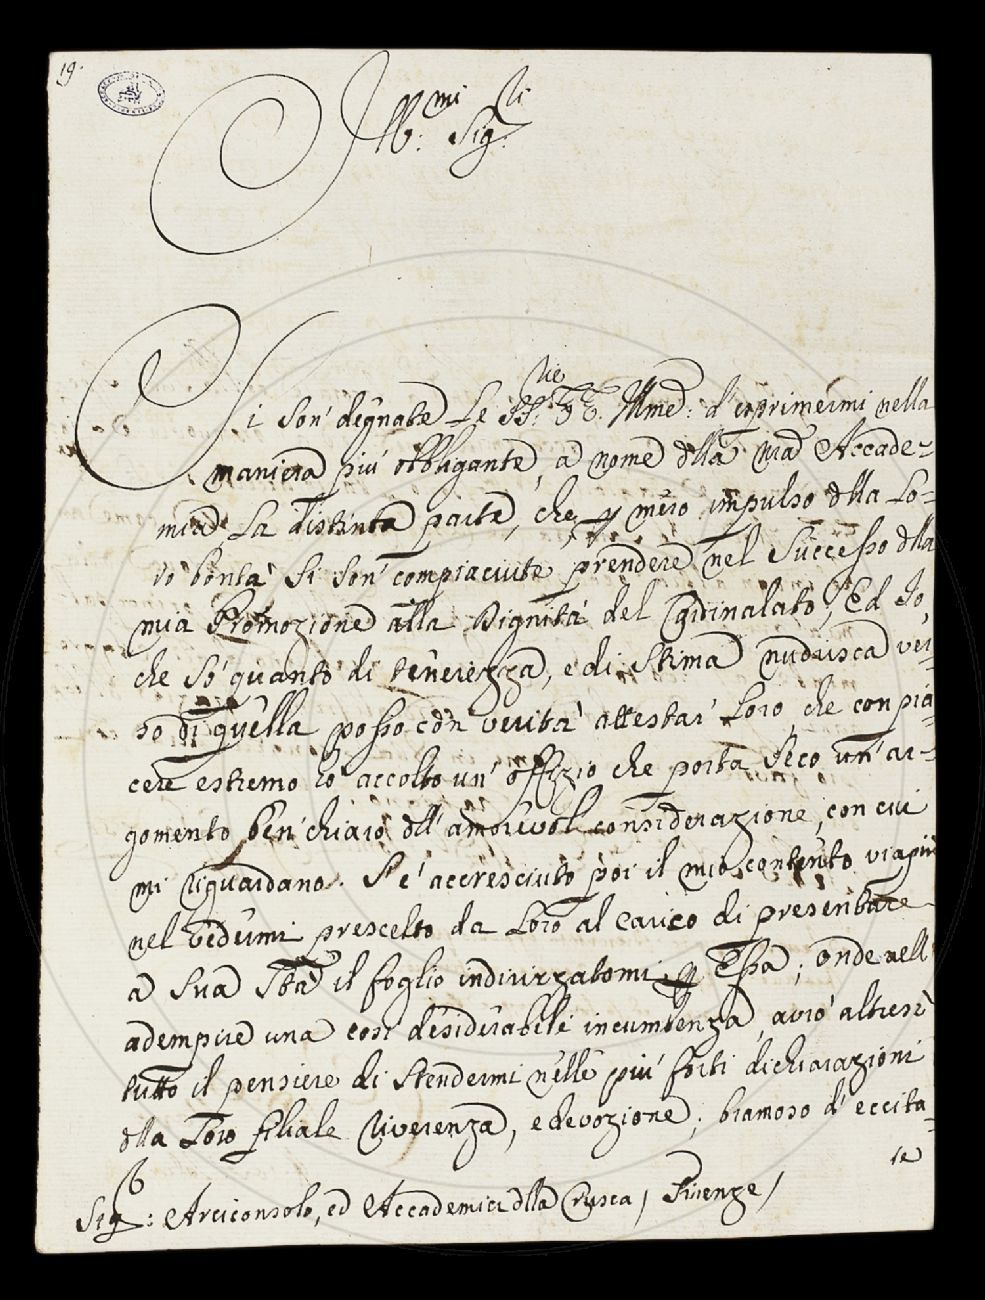 19.
Ill:mi Sig:ri
Si son' degnate Le SS.rie VV. Illme: d'esprimermi nella
maniera più obbligante, a nome dlla nra Accade=
mia La distinta parte, che, p mero impulso dlla Lo=
ro bontà si son' compiaciute prendere nel Successo dlla
mia Promozione alla Dignità del Cardinalato; Ed Io,
che sò quanto di tenerezza, e di stima nudrisca ver=
so di quella posso con verità attestar' Loro, che con pia=
cere estremo hò accolto un' offizio che porta seco un' ar=
gomento ben' chiaro dll' amorevol considerazione, con cui
mi riguardano. S'é accresciuto poi il mio contento viapiù
nel vedermi prescelto da Loro al carico di presentare
a Sua Stà il foglio indirizzatomi p Essa; onde nell'
adempire una così desiderabile incumbenza, avrò altresì
tutto il pensiere di stendermi nelle più forti dichiarazioni
dlla Loro filiale riverenza, e devozione, bramoso d' eccita=
re
Sigri: Arciconsolo, ed Accademici dlla Crusca / Firenze /